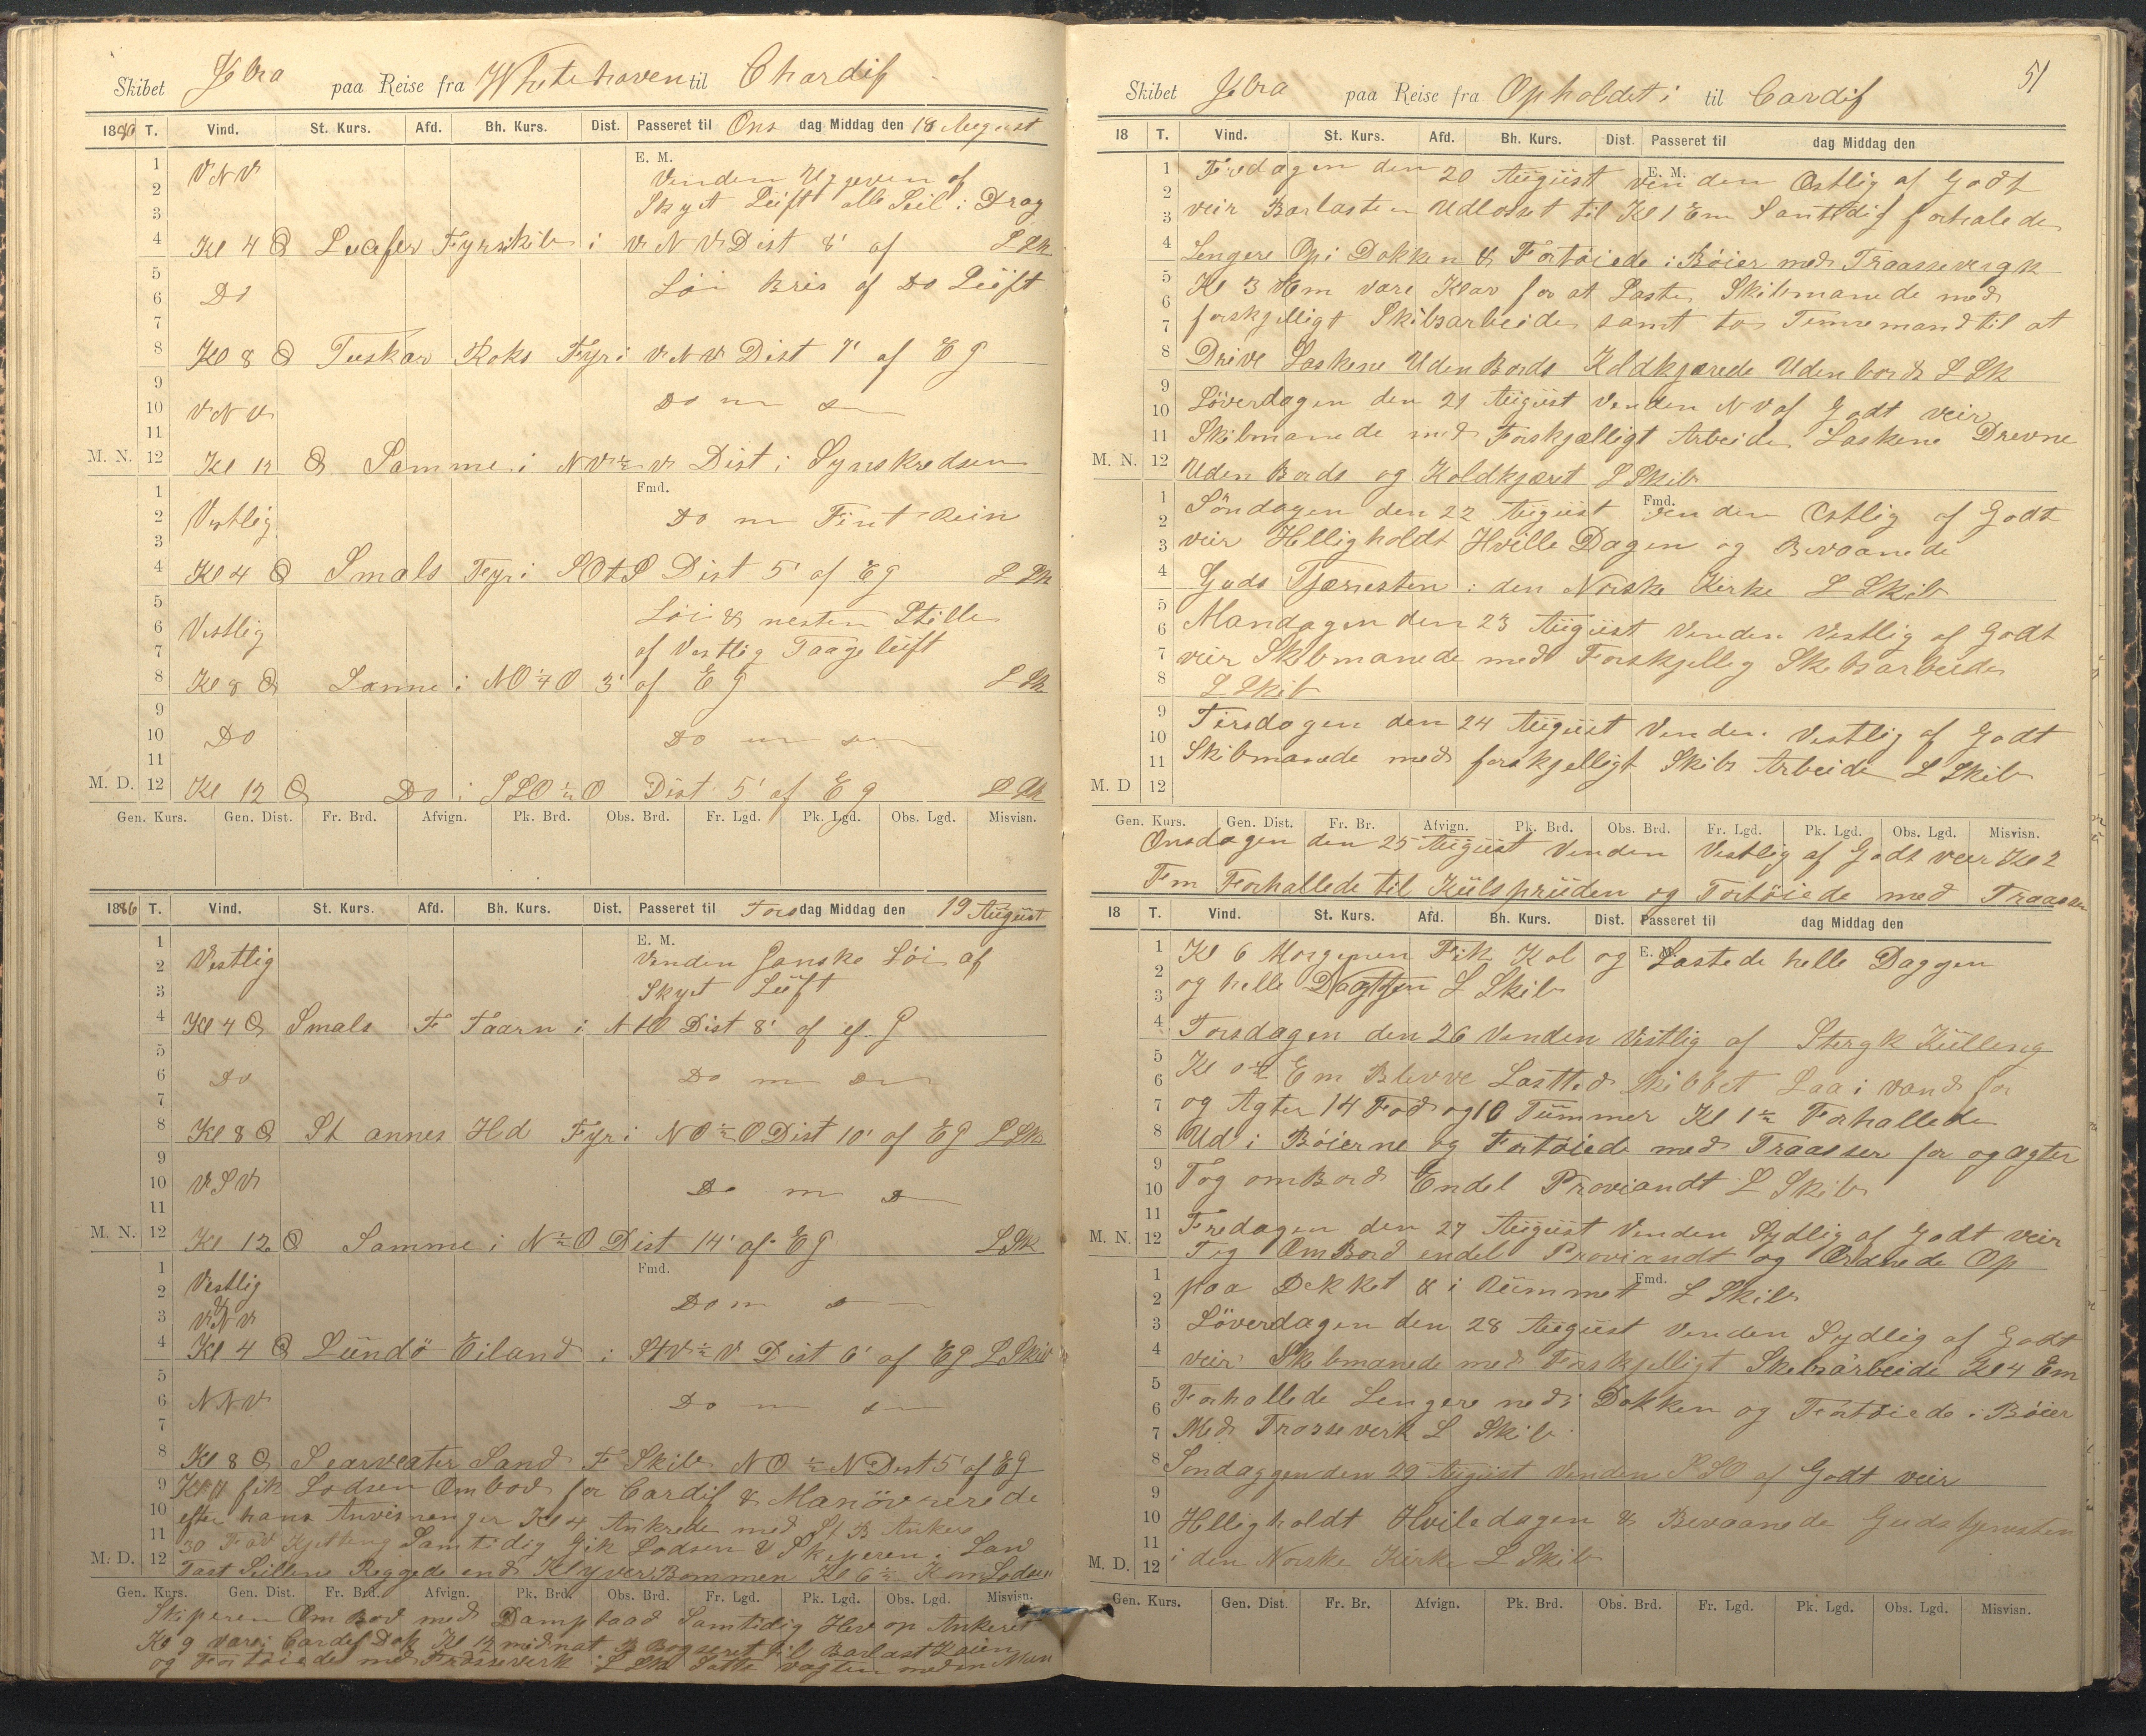 Skibet Jbra paa Reise fra Whitehaven til Chardif
1886 T. Vind. St. Kurs. Afd. Bh. Kurs. Dist. Passeret til Ons dag Middag den 18 August
E. M.
1 2 3 VNV Vinden Ugeven af
Skyet Lüft alle Seil i Drag
4 Kl 4 Lucifer Fyrskib i VNV Dist 8' af L Sk
5 6 7 Do Löi Bris af Do Lüft
8 Kl 8 Tuskar Roks Fyr i VNV Dist 7' af EG
9 10 11 VNV Do m Do
M. N. 12 Kl 12 Samme i NV½V Dist i Synskredsen
Fmd.
1 2 3 Vestlig Do m Fint Rein
4 Kl 4 Smals Fyr i SOtS Dist 5' af EG L Sk
5 6 7 Vestlig Löi & nesten Stille
af Vestlig Taage lüft
8 Kl 8 Samme i NO¼O 3' af EG L Sk
9 10 11 Do Do m
M. D. 12 Kl 12 Do i SSO½O Dist 5' af EG L Sk
Gen. Kurs. Gen. Dist. Fr. Brd. Afvign. Pk. Brd. Obs. Brd. Fr. Lgd. Pk. Lgd. Obs. Lgd. Misvisn.
1886 T. Vind. St. Kurs. Afd. Bh. Kurs. Dist. Passeret til Tors dag Middag den 19 August
E. M.
1 2 3 Vestlig Vinden Ganske Löi af
Skyet Lüft
4 Kl 4 Smals F Taarn i NtO Dist 8' af G
5 6 7 Do Do m
8 Kl 8 St annes Hd Fyr i NO½O Dist 10' af EG L Sk
9 10 11 VSV Do m
M. N. 12 Kl 12 Samme i N½O Dist 14' af EG L Sk
Fmd.
1 2 Vestlig Do m
3 & VNV
4 Kl 4 Lündö Eiland i StV½V Dist 6' af EG L Skib
5 6 7 NNV Do m
8 Kl 8 Searveater Sand F Skib NO½N Dist 5' af EG
9 Kl 11 fik Lodsen Ombod for Cardif & Manövrerede
10 efter hans Anvisninger Kl 4 Ankrede med St B Anker
11 30 Fav Kjetteng Samtidig Gik Lodsen & Skiperen i Land
M. D. 12 Fast Seillene Riggede ind Klyver Bommen Kl 6½ Kom Lodsen
Gen. Kurs. Gen. Dist. Fr. Brd. Afvign. Pk. Brd. Obs. Brd. Fr. Lgd. Pk. Lgd. Obs. Lgd. Misvisn.
Skiperen Om Bod med Dampbaad Samtidig Hev op Ankeret
Kl 9 vare i Cardif Dok Kl 12 midnat B Bogseret til Barlast Kaien
og Fortöiede med Trossevirk L Sk Satte vagten med en Man
51
Skibet Jbra paa Reise fra Opholdet i til Cardif
18 T. Vind. St. Kurs. Afd. Bh. Kurs. Dist. Passeret til dag Middag den
E. M.
1 Fredagen den 20 August vinden Ostlig af Godt
2 3 veir Barlasten Udlosset til Kl 1 Em Samtidig forhalede
4 Lengere Op i Dokken & Fortöiede i Böier med Traassevegk
5 6 Kl 3 Em vare Klar for at Laste Skibmanede med
7 forskjelligt Skibsarbeide samt to Timmemand til at
8 Drive Laskene Uden Bords Koldkjærede Udenbords L Sk
9 10 Löverdagen den 21 August Vinden NV af Godt veir
11 Skibmanede med Forskjælligt Arbeide Laskene Drevne
M. N. 12 Uden Bords og Koldkjæret L Skib
Fmd.
1 2 Söndagen den 22 August vinden Ostlig af Godt
3 veir Helligholdt Hville Dagen og Bevaanede
4 Guds Tjæniesten i den Norske Kirke L Skib
5 6 Mandagen den 23 August Vinden Vestlig af Godt
7 veir Skibmanede med Forskjellig Skibsarbeide
8 L Skib
9 10 Tirsdagen den 24 August Vinden Vestlig af Godt
11 Skibmanede med forskjelligt Skibs Arbeide L Skib
M. D 12
Gen. Kurs. Gen. Dist. Fr. Br. Afvign. Pk. Brd. Obs. Brd. Fr. Lgd. Pk. Lgd. Obs. Lgd. Misvisn.
Onsdagen den 25 August Vinden Vestlig af Godt veir Kl 2
Fm Forhallede til Külsprüden og Fortöiede med Traasser
18 T. Vind. St. Kurs. Afd. Bh. Kurs. Dist. Passeret til dag Middag den
E. M.
1 Kl 6 Morgenen Fik Kol og Lastede helle Daggen
2 3 og helle Daggen L Skib
4 Torsdagen den 26 Vinden Vestlig af Stergk Külleng
5 6 Kl Em Blevve Lastted Skibbet Laa i vand for
7 og Agter 14 Fod og 10 Tümmer Kl 1½ Forhallede
8 Ud i Böierne og Fortöiede med Traasser for og agter
9 10 Tog om Bord Endel Proviandt L Skib
11 Fredagen den 27 August Vinden Sydlig af Godt veir
M. N. 12 Tog Om Bord endel Proviandt og Ordnede Op
Fmd.
1 2 paa Dekket & i Rümmet L Skib
3 Löverdagen den 28 August Vinden Sydlig af Godt
4 veir Skibmanede med Forskjelligt Skibsarbeide Kl 4 Em
5 6 Forhallede Lengere ned i Dokken og Fortöiede i Böier
7 Med Trosseverk L Skib
8 Söndaggen den 29 August Vinden SSO af Godt veir
9 10 Helligholdt Hviledagen & Bevaanede Gudstjenesten
11 M. D. 12 i den Norske Kirke L Skib
Gen. Kurs. Gen. Dist. Fr. Br. Afvign. Pk. Brd. Obs. Brd. Fr. Lgd. Pk. Lgd. Obs. Lgd. Misvisn.